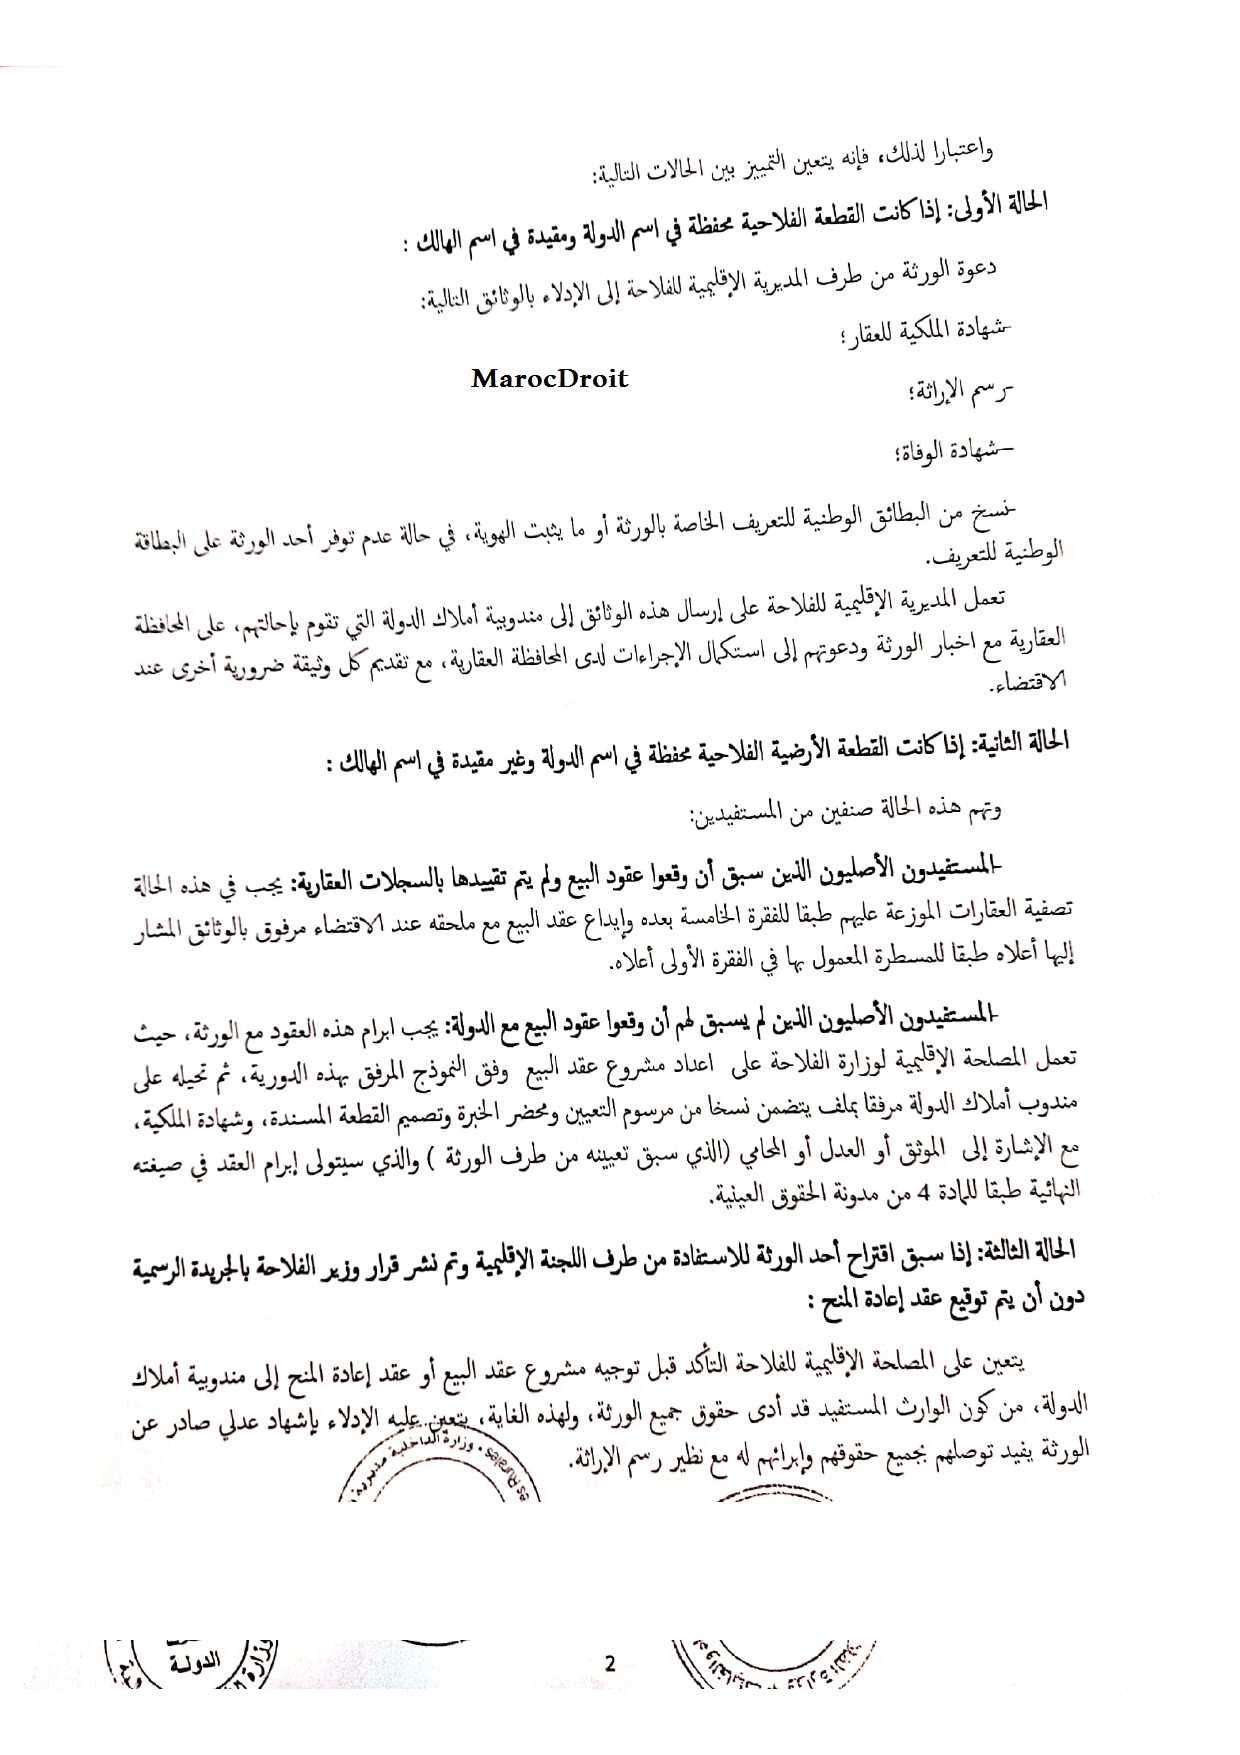 واعتبارا لذلك، فإنه يتعين التمييز بين الحالات التالية:
الحالة الأولى: إذا كانت القطعة الفلاحية محفظة في اسم الدولة ومقيدة في اسم الهالك :
دعوة الورثة من طرف المديرية الإقليمية للفلاحة إلى الإدلاء بالوثائق التالية:
-شهادة الملكية للعقار؛
MarocDroit
-رسم الإراثة؛
-شهادة الوفاة؛
-نسخ من البطائق الوطنية للتعريف الخاصة بالورثة أو ما يثبت الهوية، في حالة عدم توفر أحد الورثة على البطاقة
الوطنية للتعريف.
تعمل المديرية الإقليمية للفلاحة على إرسال هذه الوثائق إلى مندوبية أملاك الدولة التي تقوم بإحالتهم، على المحافظة
العقارية مع اخبار الورثة ودعوتهم إلى استكمال الإجراءات لدى المحافظة العقارية، مع تقديم كل وثيقة ضرورية أخرى عند
الاقتضاء.
الحالة الثانية: إذا كانت القطعة الأرضية الفلاحية محفظة في اسم الدولة وغير مقيدة في اسم الهالك :
وتهم هذه الحالة صنفين من المستفيدين:
-المستفيدون الأصليون الذين سبق أن وقعوا عقود البيع ولم يتم تقييدها بالسجلات العقارية: يجب في هذه الحالة
تصفية العقارات الموزعة عليهم طبقا للفقرة الخامسة بعده وإيداع عقد البيع مع ملحقه عند الاقتضاء مرفوق بالوثائق المشار
إليها أعلاه طبقا للمسطرة المعمول بها في الفقرة الأولى أعلاه.
-المستفيدون الأصليون الذين لم يسبق لهم أن وقعوا عقود البيع مع الدولة: يجب ابرام هذه العقود مع الورثة، حيث
تعمل المصلحة الإقليمية لوزارة الفلاحة على اعداد مشروع عقد البيع وفق النموذج المرفق بهذه الدورية، ثم تحيله على
مندوب أملاك الدولة مرفقا بملف يتضمن نسخا من مرسوم التعيين ومحضر الخبرة وتصميم القطعة المسندة، وشهادة الملكية،
مع الإشارة إلى الموثق أو العدل أو المحامي (الذي سبق تعيينه من طرف الورثة ) والذي سيتولى إبرام العقد في صيغته
النهائية طبقا للمادة 4 من مدونة الحقوق العينية.
الحالة الثالثة: إذا سبق اقتراح أحد الورثة للاستفادة من طرف اللجنة الإقليمية وتم نشر قرار وزير الفلاحة بالجريدة الرسمية
دون أن يتم توقيع عقد إعادة المنح :
يتعين على المصلحة الإقليمية للفلاحة التأكد قبل توجيه مشروع عقد البيع أو عقد إعادة المنح إلى مندوبية أملاك
الدولة، من كون الوارث المستفيد قد أدى حقوق جميع الورثة، ولهذه الغاية، يتعين عليه الإدلاء بإشهاد عدلي صادر عن
الورثة يفيد توصلهم بجميع حقوقهم وإبرائهم له مع نظير رسم الإراثة.
وزارة الداخلية • مديرية
es Rurales
الدولة
2